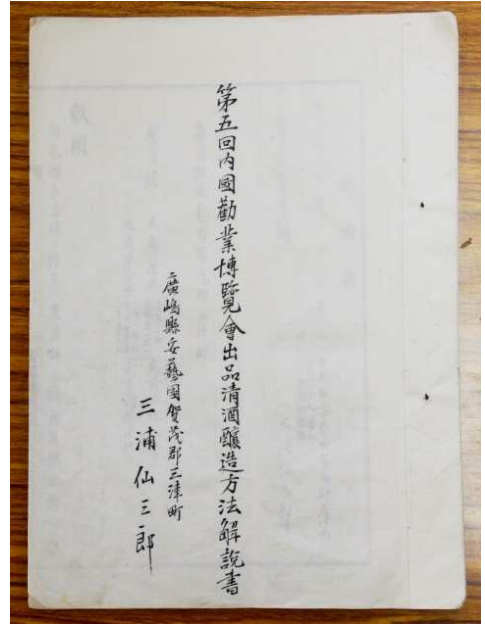 第五回内國勸業博覽會出品清酒釀造方法解說書
廣嶋縣安藝国賀茂郡三津町
三浦仙三郎